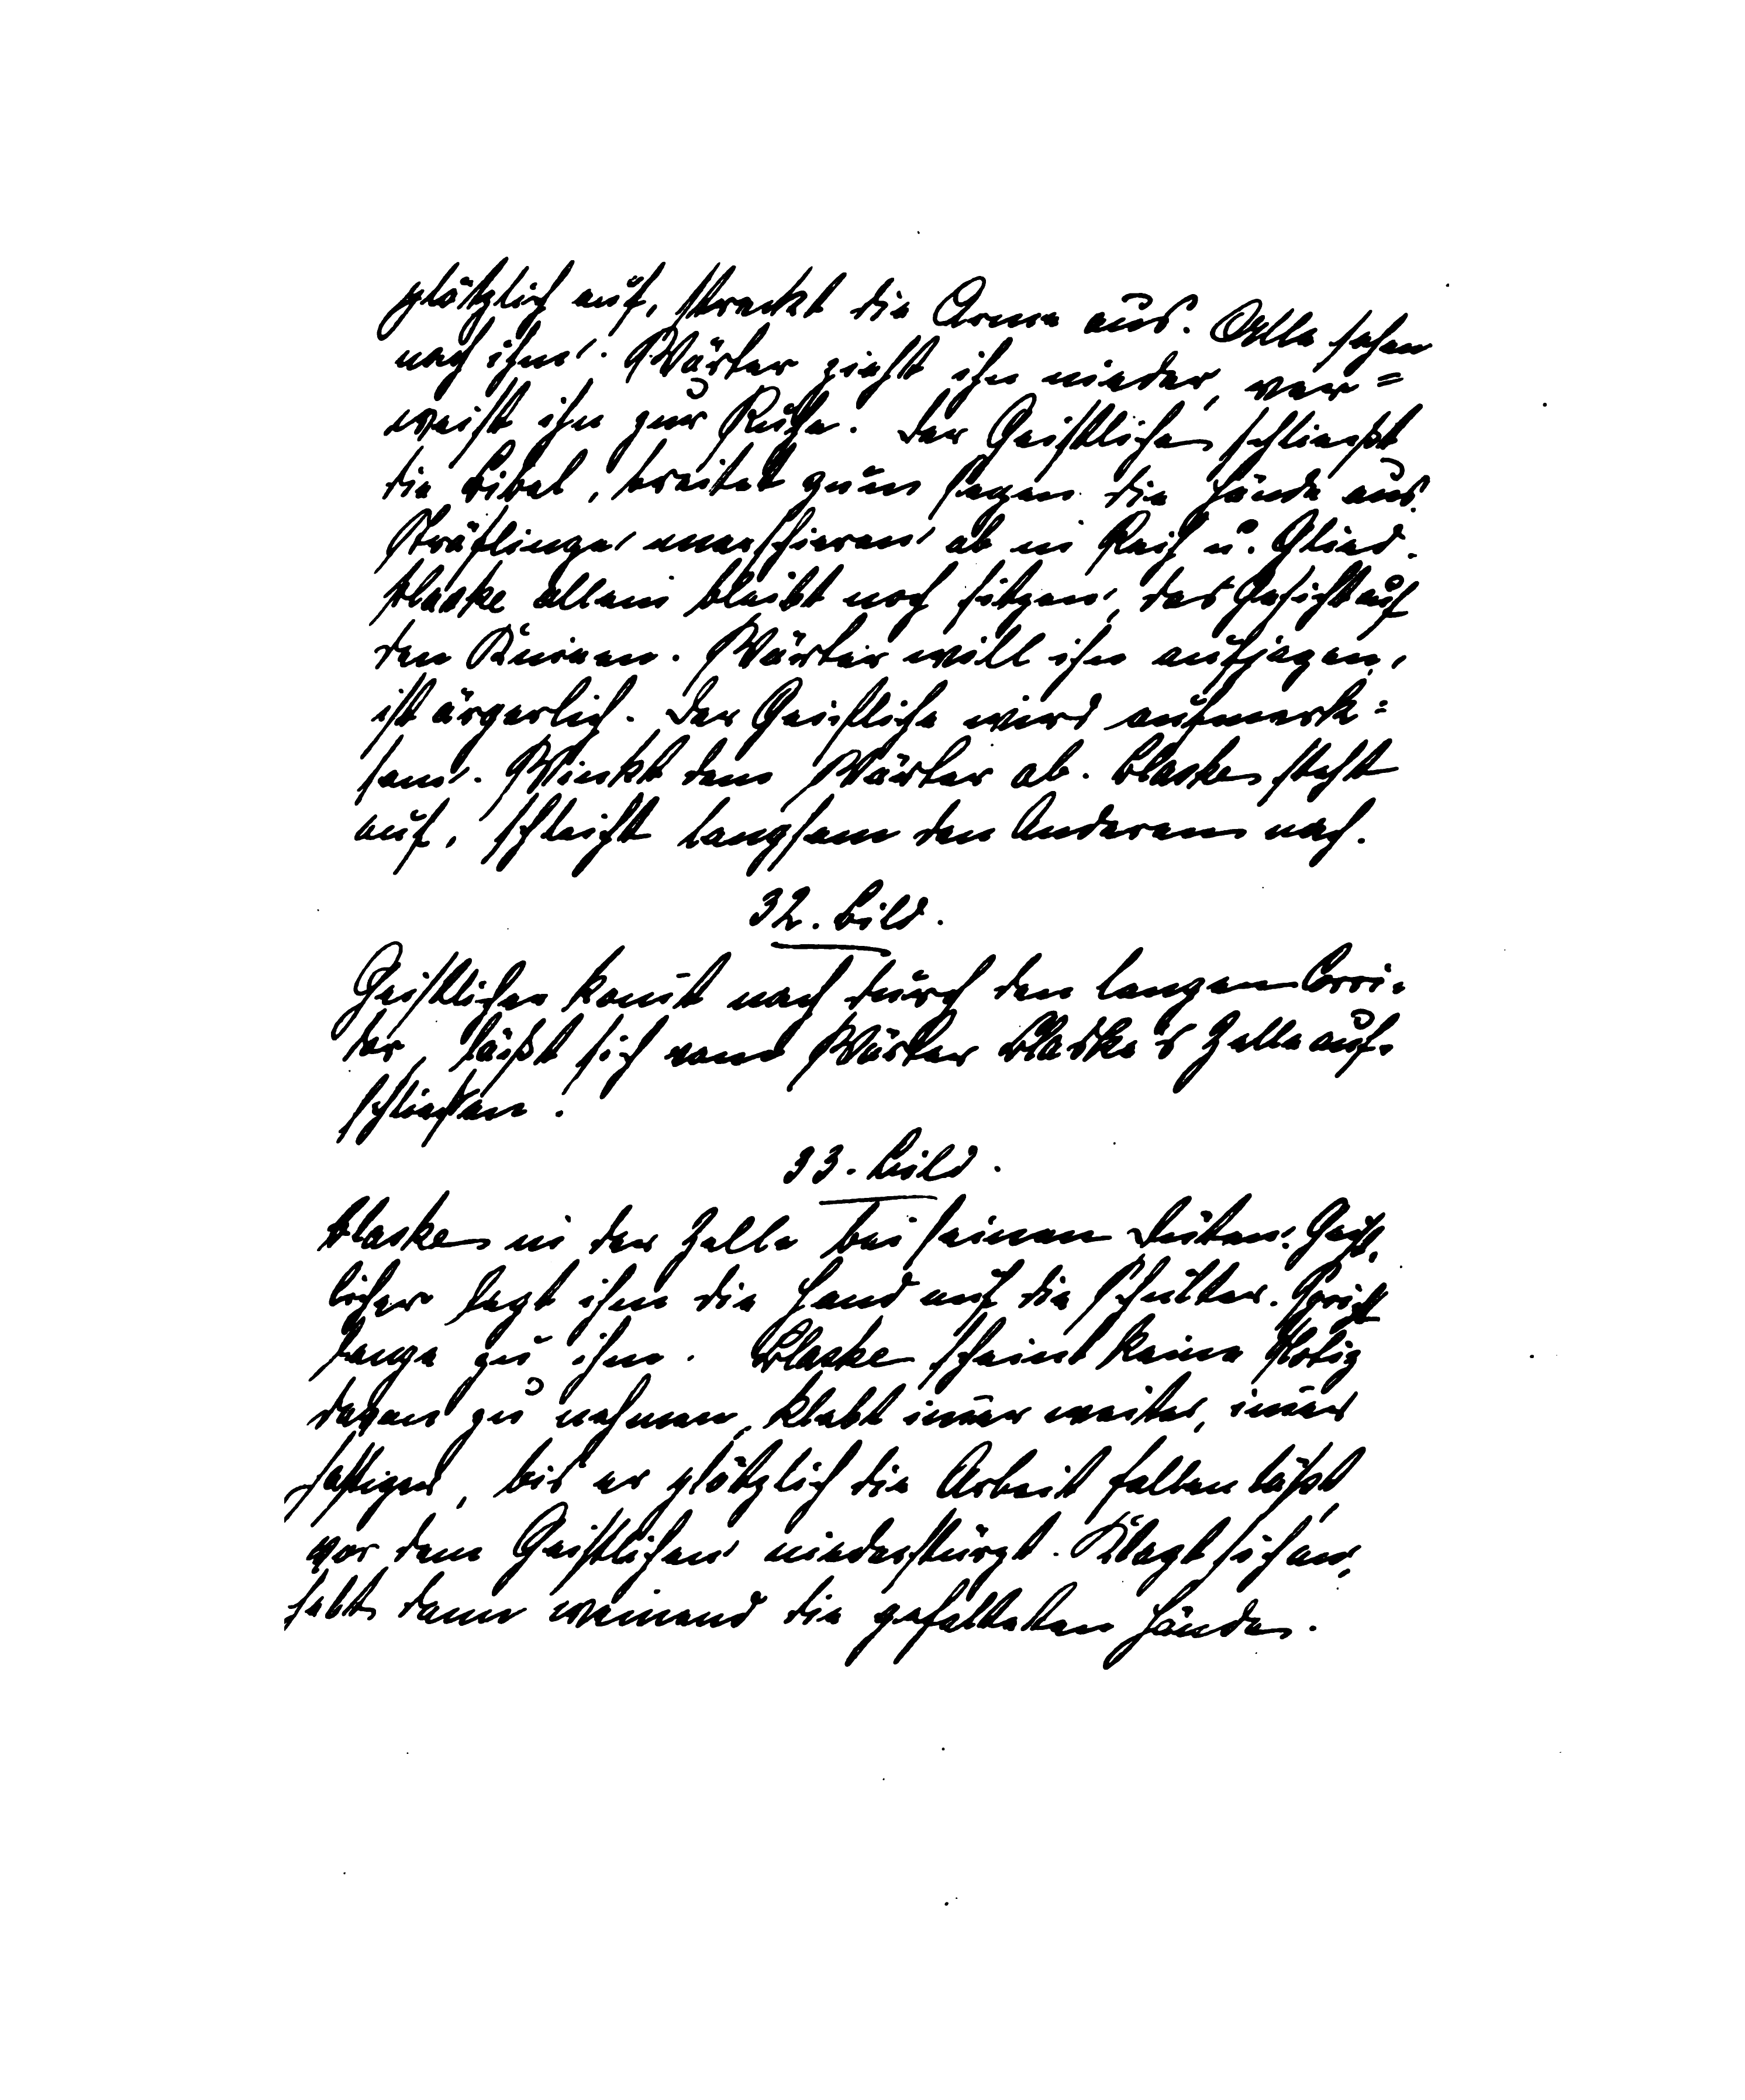 plötzlich auf, streckt die Arme aus. Alle sehen
nach ihm. Wärter zieht ihn nieder, ver=
weist ihn zur Ruhe. Der Geistliche schliesst
die Bibel, breitet zum Segen die Hände aus.
Sträflinge marschieren ab in Reih u. Glied.
Blaske allein bleibt noch sitzen, das Gesicht auf
den Knieen. Wärter will ihn aufjagen,
ist ärgerlich. Der Geistliche wird aufmerk=
sam. Winkt dem Wärter ab. Blaske steht
auf, schleicht langsam den Anderen nach.
32. Bild.
Geistlicher kom̄t nach durch den langen Corri-
dor, läßt sich vom Wärter Blaske's Zelle auf-
schliessen.
33. Bild.
Blaske in der Zelle bei seinen Düten. Geist-
licher legt ihm die Hand auf die Schulter. Spricht
lange zu ihm. Blaske scheint keine Notiz
davon zu nehmen, klebt im̄er weiter, im̄er
hastiger, bis er plötzlich die Arbeit fallen läßt,
vor dem Geistlichen niederstürzt. Klagt sich an,
hebt dann weinend die gefalteten Hände.